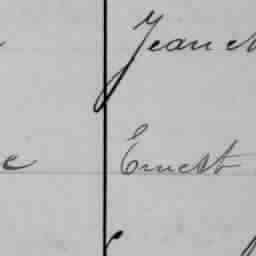 Jean
e Ernest